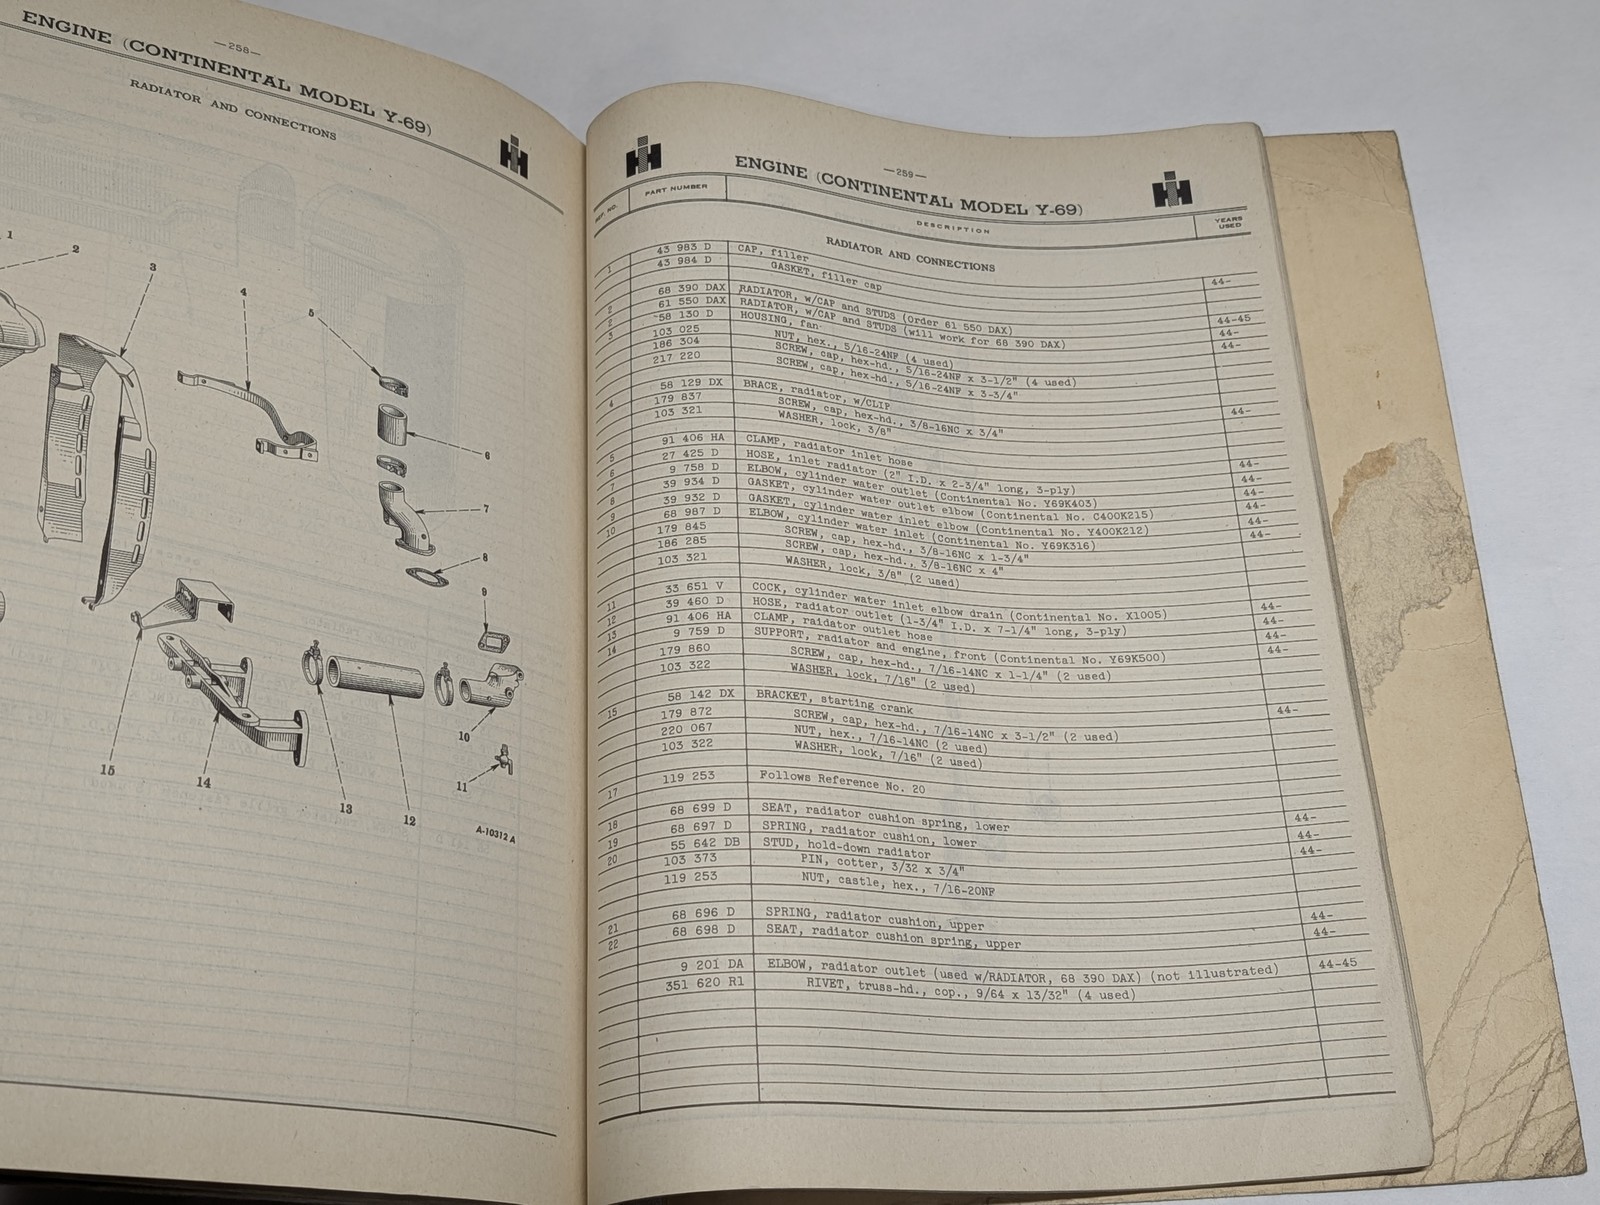 —258—
ENGINE (CONTINENTAL MODEL Y-69)
RADIATOR AND CONNECTIONS
1
2
3
4
5
6
7
8
9
10
11
12
13
14
15
A-10312 A
—259—
ENGINE (CONTINENTAL MODEL Y-69)
REF. NO. PART NUMBER DESCRIPTION YEARS USED
RADIATOR AND CONNECTIONS
1 43 983 D CAP, filler 44-
43 984 D GASKET, filler cap
2 68 390 DAX RADIATOR, w/CAP and STUDS (Order 61 550 DAX) 44-45
2 61 550 DAX RADIATOR, w/CAP and STUDS (will work for 68 390 DAX) 44-
3 58 130 D HOUSING, fan 44-
103 025 NUT, hex., 5/16-24NF (4 used)
186 304 SCREW, cap, hex-hd., 5/16-24NF x 3-1/2" (4 used)
217 220 SCREW, cap, hex-hd., 5/16-24NF x 3-3/4"
4 58 129 DX BRACE, radiator, w/CLIP 44-
179 837 SCREW, cap, hex-hd., 3/8-16NC x 3/4"
103 321 WASHER, lock, 3/8"
5 91 406 HA CLAMP, radiator inlet hose 44-
6 27 425 D HOSE, inlet radiator (2" I.D. x 2-3/4" long, 3-ply) 44-
7 9 758 D ELBOW, cylinder water outlet (Continental No. Y69K403) 44-
8 39 934 D GASKET, cylinder water outlet elbow (Continental No. C400K215) 44-
9 39 932 D GASKET, cylinder water inlet elbow (Continental No. Y400K212) 44-
10 68 987 D ELBOW, cylinder water inlet (Continental No. Y69K316) 44-
179 845 SCREW, cap, hex-hd., 3/8-16NC x 1-3/4"
186 285 SCREW, cap, hex-hd., 3/8-16NC x 4"
103 321 WASHER, lock, 3/8" (2 used)
11 33 651 V COCK, cylinder water inlet elbow drain (Continental No. X1005) 44-
12 39 460 D HOSE, radiator outlet (1-3/4" I.D. x 7-1/4" long, 3-ply) 44-
13 91 406 HA CLAMP, raidator outlet hose 44-
14 9 759 D SUPPORT, radiator and engine, front (Continental No. Y69K500) 44-
179 860 SCREW, cap, hex-hd., 7/16-14NC x 1-1/4" (2 used)
103 322 WASHER, lock, 7/16" (2 used)
15 58 142 DX BRACKET, starting crank 44-
179 872 SCREW, cap, hex-hd., 7/16-14NC x 3-1/2" (2 used)
220 067 NUT, hex., 7/16-14NC (2 used)
103 322 WASHER, lock, 7/16" (2 used)
17 119 253 Follows Reference No. 20
18 68 699 D SEAT, radiator cushion spring, lower 44-
19 68 697 D SPRING, radiator cushion, lower 44-
20 55 642 DB STUD, hold-down radiator 44-
103 373 PIN, cotter, 3/32 x 3/4"
119 253 NUT, castle, hex., 7/16-20NF
21 68 696 D SPRING, radiator cushion, upper 44-
22 68 698 D SEAT, radiator cushion spring, upper 44-
9 201 DA ELBOW, radiator outlet (used w/RADIATOR, 68 390 DAX) (not illustrated) 44-45
351 620 R1 RIVET, truss-hd., cop., 9/64 x 13/32" (4 used)